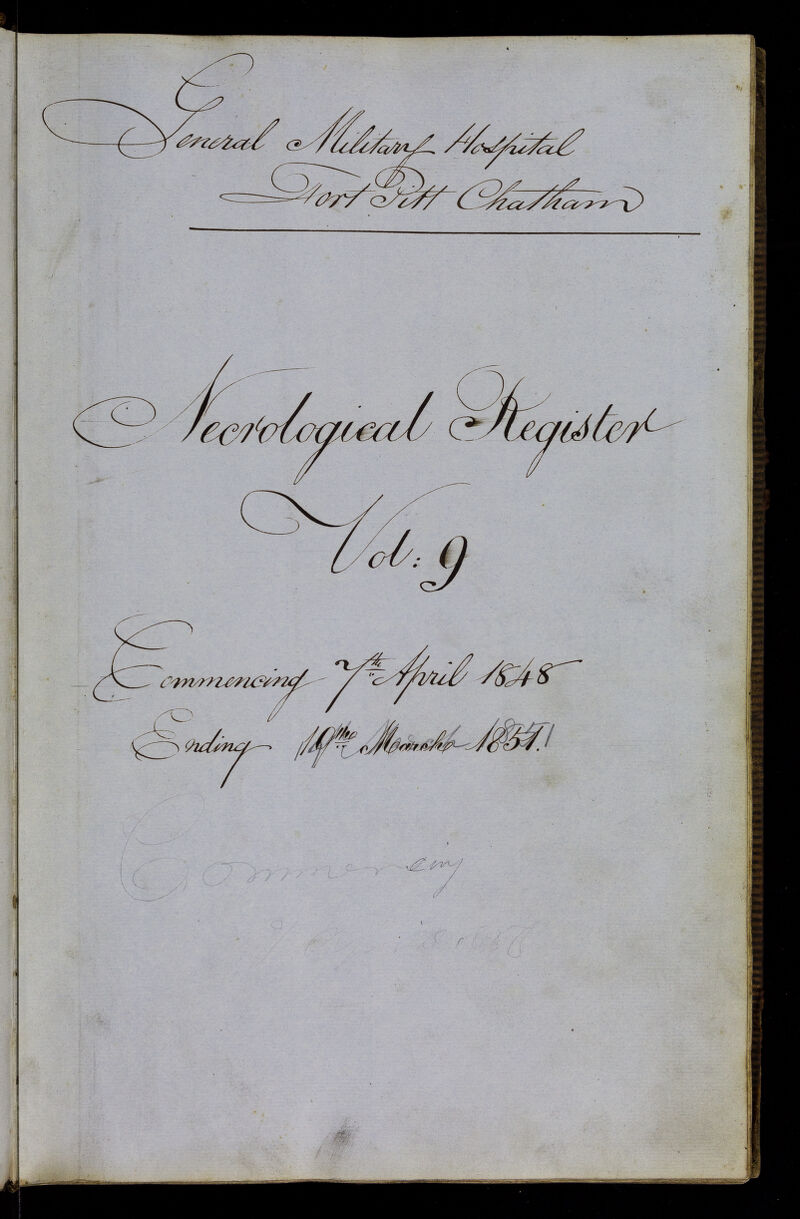 General Military Hospital
Fort Pitt Chatham
Necrological Register
Vol: 9
Commencing 7th April 1848
Ending 19th March 1851.
Commencing